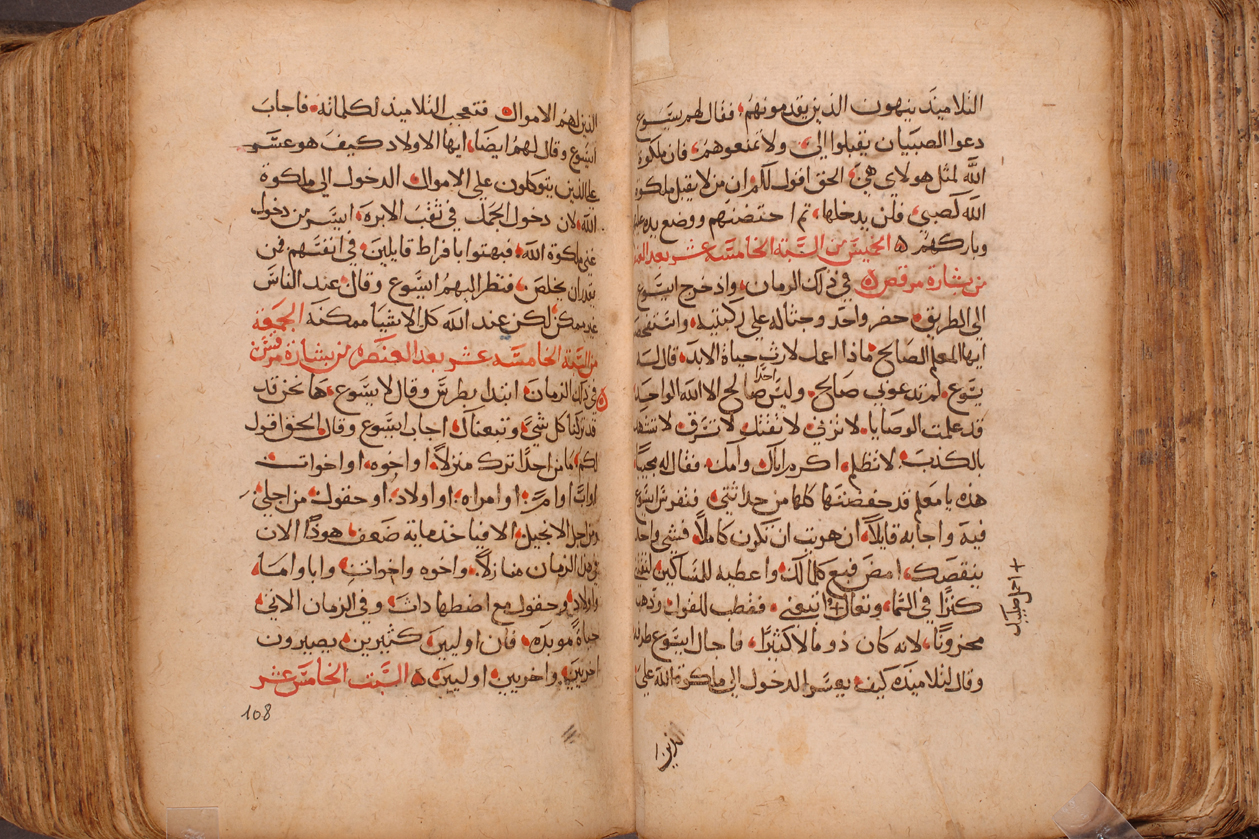 التلاميذ ينهون الذين يقدمونهم فقال لهم يسوع
دعوا الصبيان يقبلوا الي ولا تمنعوهم فان ملكوة
الله لمثل هولاي هي الحق اقول لكم ان من لا يقبل ملكوة
الله كصبي فلن يدخلها ثم احتضنهم ووضع يده عليهم
وباركهم ه الخميس من السبة الخامسه عشر بعد
من بشارة مرقص ه في ذلك الزمان واذ خرج ايسوع
الي الطريق حضر واحد وجثا له علي ركبتيه
ايها المعلم الصالح ماذا اعمل لارث حياة الابد قال له
يسوع لم تدعوني صالح وليس احدًا صالح الا الله الواحد
قد علمت الوصايا لا تزني لا تقتل لا تسرق لا تشهد
بالكذب لا تظلم اكرم اباك وامك فقال له مجيبا
هذه يا معلم قد حفضتها كلها من حداثتي فتفرس ايسوع
فيه واجابه قايلًا ان هويت ان تكون كاملًا فشي واحد
ينقصك امض فبع كلما لك واعطيه للمساكين
كنزًا في السما وتعال + اتبعني فقطب للقول وذهب
+ احمل صليبك
محزونًا لانه كان ذو مال كثيرًا فاجال ايسوع طرفه
وقال لتلاميذه كيف يعسر الدخول الي ملكوة الله علي
الذين
الذين لهم الاموال فتعجب التلاميذ لكلماته فاجاب
ايسوع وقال لهم ايضًا ايها الاولاد كيف هو عسر
علي الذين يتوكلون علي الاموال الدخول الي ملكوة
الله لان دخول الجمل في ثقب الابره ايسر من دخول
غني ملكوة الله فبهتوا بافراط قايلين في انفسهم فمن
يقدر ان يخلص فنظر اليهم ايسوع وقال عند الناس
غير ممكن لكن عند الله كل الاشيا ممكنه الجمعة
من السبة الخامسه عشر بعد العنصره من بشارة مرقس
ه في ذلك الزمان ابتدا بطرس وقال لايسوع ها نحن قد
قد تركنا كل شي وتبعناك اجاب ايسوع وقال الحق اقول
لكم ما من احدًا ترك منزلًا او اخوه او اخوات
او ابًا او امًا او امراه او اولاد او حقول من اجلي
ومن اجل الانجيل الا فياخذ ماية ضعف هوذا الان
في هذا الزمان منازلًا واخوه واخوات وابا واما
واولاد وحقول مع اضطهادات وفي الزمان الاتي
حياة موبده فان اولين كثيرين يصيرون
اخرين واخرين اولين ه السبت الخامس عشر
108